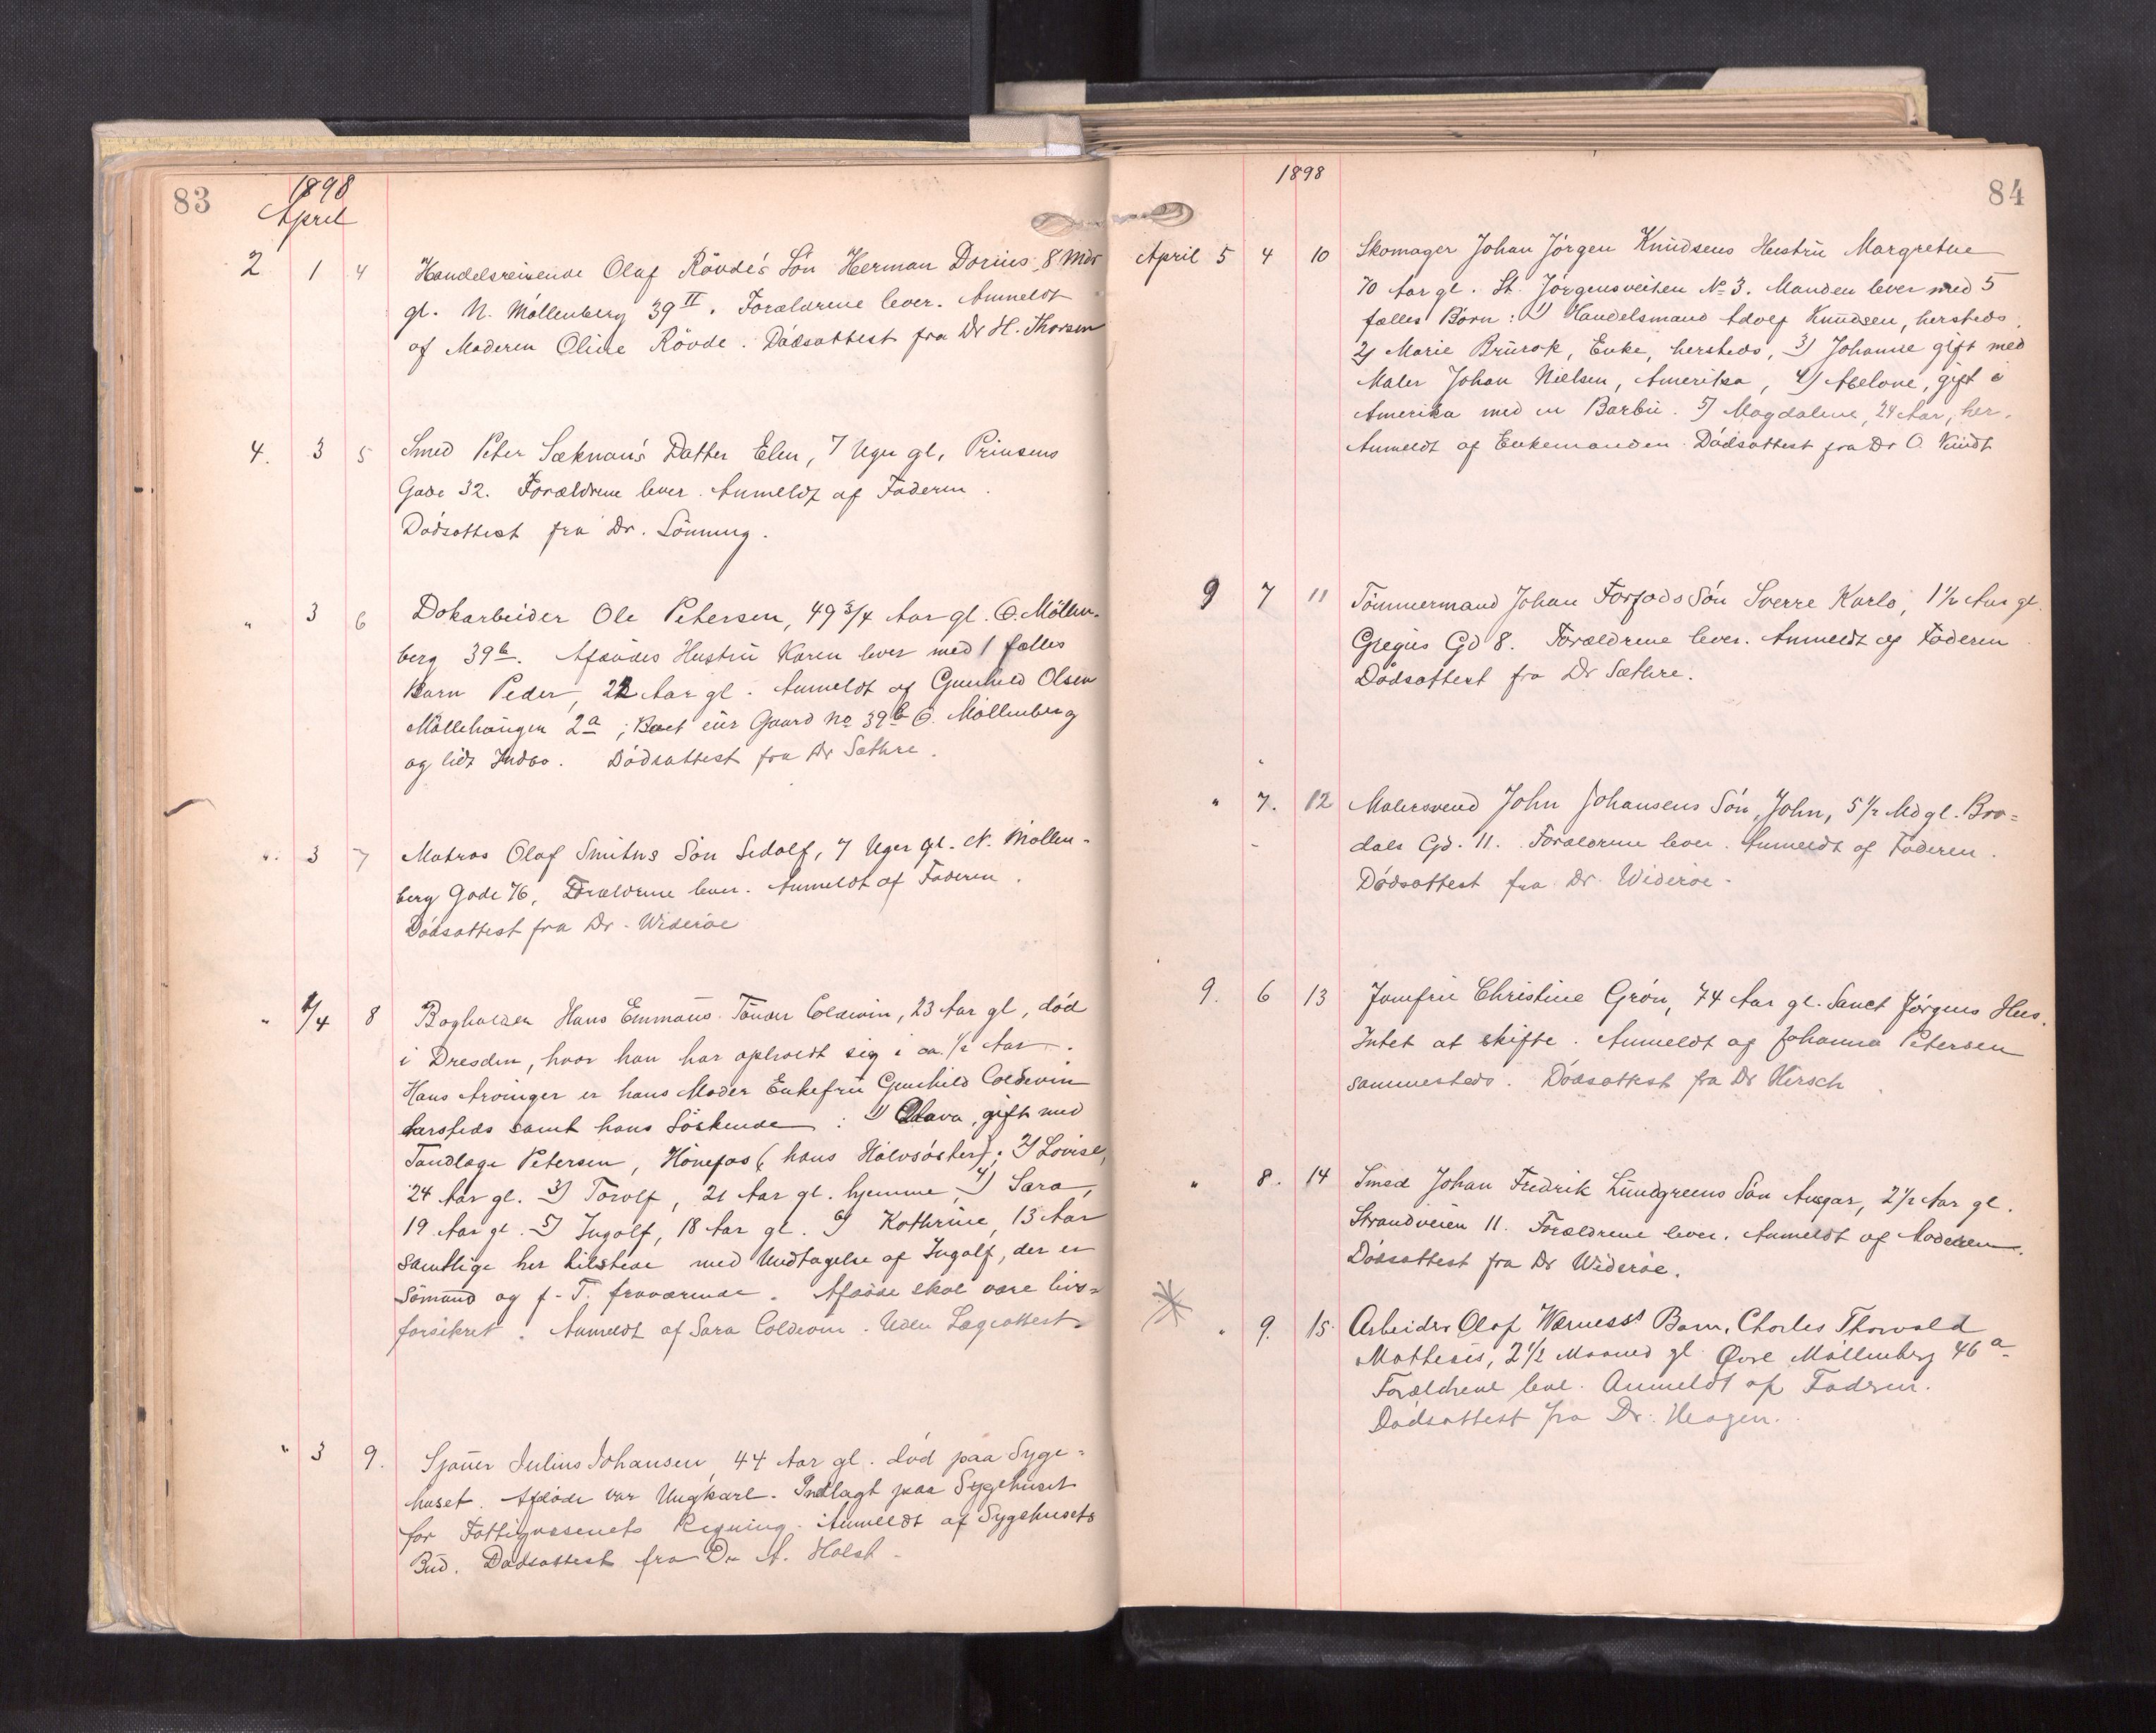 83
1898
April
2 1 4 Handelsreisende Olaf Rövde's Sön Herman Dorius, 8 Mdr
gl. N. Möllenberg 39 II. Forældrene lever. Anmeldt
af Moderen Oline Rövde. Dödsattest fra Dr H. Thorsen
4. 3 5 Smed Peter Sæknau's Datter Elen, 7 Uger gl, Prinsens
Gade 32. Forældrene lever. Anmeldt af Faderen.
Dödsattest fra Dr. Lönning.
" 3 6 Dokarbeider Ole Petersen, 49 3/4 Aar gl. Ö. Möllen-
berg 39b. Afdödes Hustru Karen lever med 1 fælles
Barn Peder, 22 Aar gl. Anmeldt af Gunhild Olsen
Möllehaugen 2a; Boet eier Gaard No 39b Ö. Möllenberg
og lidt Indbo. Dödsattest fra Dr Sæthre.
". 3 7 Matros Olaf Smiths Sön Sedolf, 7 Uger gl. N. Möllen-
berg Gade 76, Forældrene lever. Anmeldt af Faderen.
Dödsattest fra Dr. Wideröe
" 1/4 8 Bogholder Hans Emmaus Tönder Coldevin, 23 Aar gl, död
i Dresden, hvor han har opholdt sig i ca. 1/2 Aar.
Hans Arvinger er hans Moder Enkefru Gunhild Coldevin
hersteds samt hans Söskende: 1) Olava, gift med
Tandlæge Petersen, Hönefos (hans Halvsöster); 2) Lovise,
24 Aar gl. 3) Torolf, 21 Aar gl. hjemme, 4) Sara,
19 Aar gl. 5) Ingolf, 18 Aar gl. 6) Kathrine, 13 Aar
samtlige her tilstede med Undtagelse af Ingolf, der er
Sömand og p. T. fraværende. Afdöde skal være livs-
forsikret. Anmeldt af Sara Coldevin. Uden Lægeattest.
" 3 9. Sjauer Julius Johansen, 44 Aar gl. död paa Syge-
huset. Afdöde var Ungkarl. Indlagt paa Sygehuset
for Fattigvæsenets Regning. Anmeldt af Sygehusets
Bud. Dødsattest fra Dr A. Holst.
1898
84
April 5 4 10 Skomager Johan Jörgen Knudsens Hustru Margrethe
70 Aar gl. St. Jörgensveiten No 3. Manden lever med 5
fælles Börn: 1) Handelsmand Adolf Knudsen, hersteds,
2) Marie Brurok, Enke, hersteds, 3) Johanne gift med
Maler Johan Nielsen, Amerika, 4) Abelone, gift i
Amerika med en Barbu. 5) Magdalene, 24 Aar, her.
Anmeldt af Enkemanden. Dödsattest fra Dr O. Kindt
9 7 11 Tömmermand Johan Forfods Sön Sverre Karlo, 1 1/2 Aar gl.
Gregus Gd 8. Forældrene lever. Anmeldt af Faderen
Dödsattest fra Dr Sæthre.
" 7. 12 Malersvend John Johansens Sön, John, 5 1/2 Md gl. Bro=
dals Gd. 11. Forældrene lever. Anmeldt af Faderen.
Dödsattest fra Dr. Wideröe.
9. 6 13 Jomfru Christine Grön, 74 Aar gl. Sanct Jörgens Hus.
Intet at skifte. Anmeldt af Johanna Petersen
sammesteds. Dödsattest fra Dr Kirsch
" 8. 14 Smed Johan Fredrik Lundgreens Sön Ansgar, 2 1/2 Aar gl.
Strandveien 11. Forældrene lever. Anmeldt af Moderen.
Dödsattest fra Dr Wideröe.
" 9. 15. Arbeider Olaf Værness' Barn, Charles Thorvald
Matheus, 2 1/2 Maaned gl. Øvre Möllenberg 46a
Forældrene leve. Anmeldt af Faderen.
Dödsattest fra Dr. Hagen.